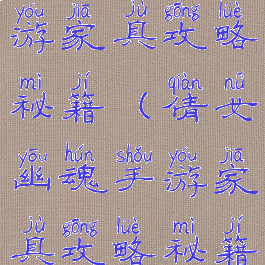 yóu jiā jù gōng lüè
游家具攻略
mì jí qiàn nǚ
秘籍（倩女
yōu hún shǒu yóu jiā
幽魂手游家
jù gōng lüè mì jí
具攻略秘籍